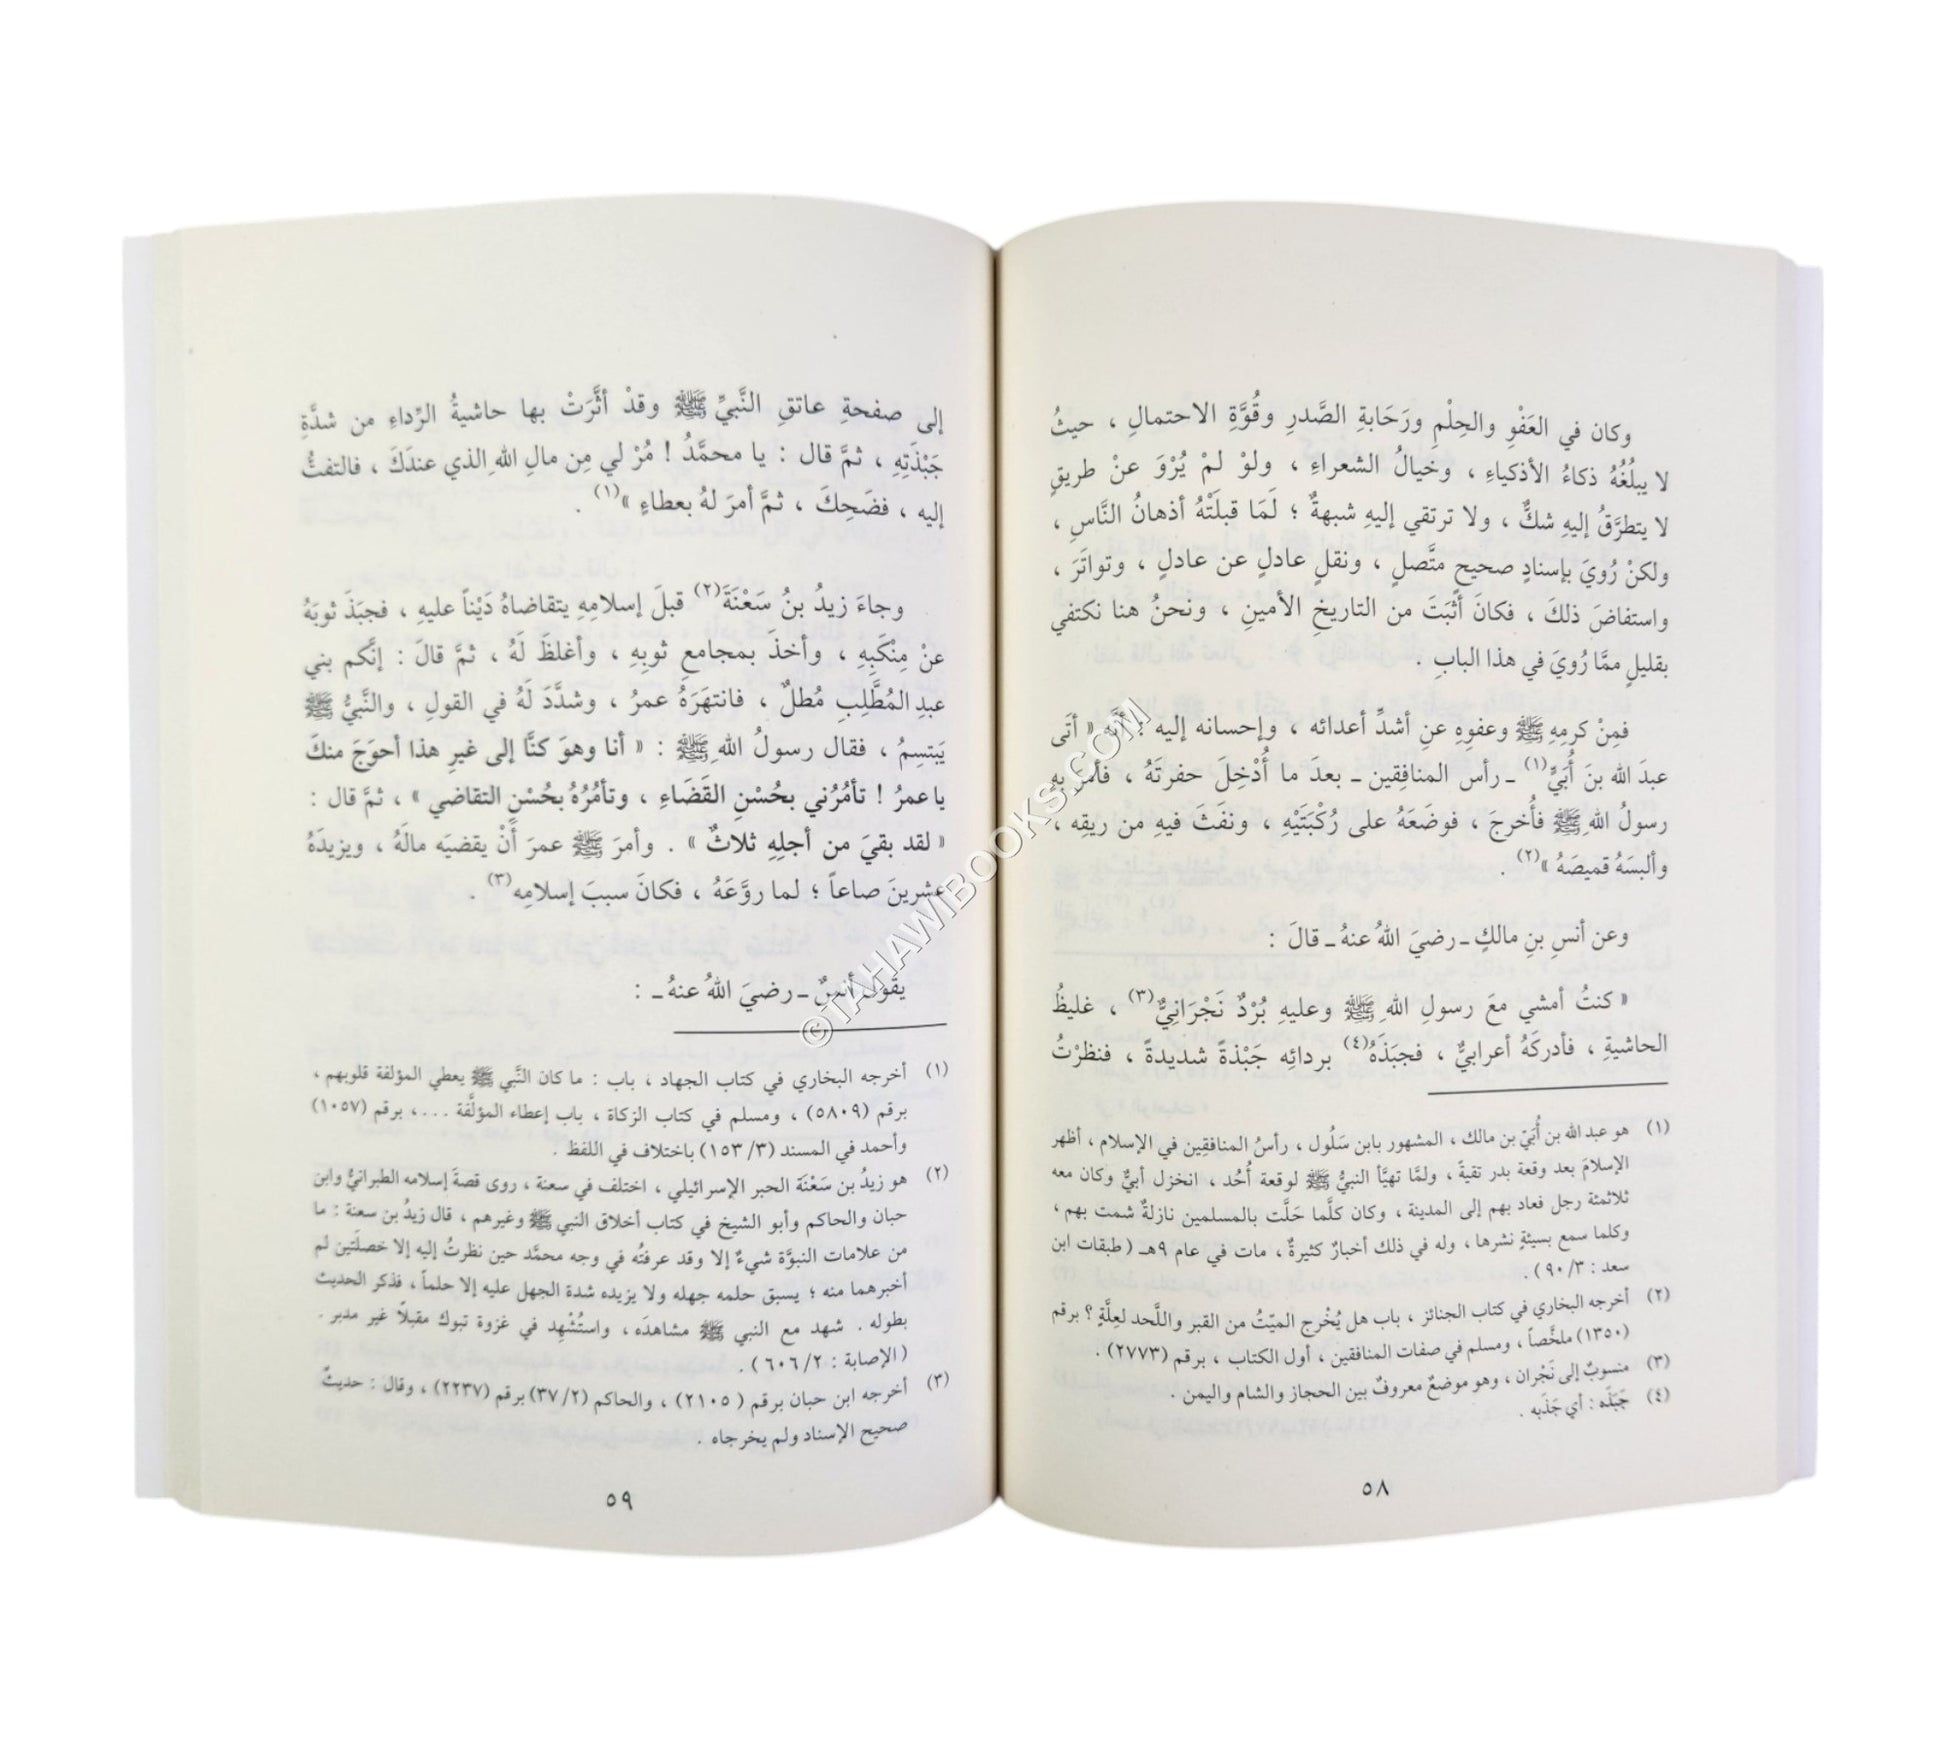 وكان في العَفْوِ والحِلْمِ ورَحَابةِ الصَّدرِ وقُوَّةِ الاحتمالِ ، حيثُ
لا يبلُغُهُ ذكاءُ الأذكياءِ ، وخيالُ الشعراءِ ، ولوْ لمْ يُرْوَ عنْ طريقٍ
لا يتطرَّقُ إليهِ شكٌّ ، ولا ترتقي إليهِ شبهةٌ ؛ لَمَا قبلَتْهُ أذهانُ النَّاسِ ،
ولكنْ رُويَ بإسنادٍ صحيحٍ متَّصلٍ ، ونقلِ عادلٍ عن عادلٍ ، وتواتَرَ ،
واستفاضَ ذلكَ ، فكانَ أثبَتَ من التاريخِ الأمينِ ، ونحنُ هنا نكتفي
بقليلٍ ممَّا رُويَ في هذا البابِ .
فمِنْ كرمِهِ ﷺ وعفوِهِ عنِ أشدِّ أعدائه ، وإحسانه إليه : أنَّه « أتَى
عبدَ الله بنَ أُبَيٍّ(١) ـ رأس المنافِقين ـ بعدَ ما أُدْخِلَ حفرتَهُ ، فأمَرَ بهِ
رسولُ اللهِ ﷺ فأُخرجَ ، فوضَعَهُ على رُكْبَتَيْهِ ، ونفَثَ فيهِ من ريقِه ،
وألبسَهُ قميصَهُ »(٢) .
وعن أنسِ بنِ مالكٍ ـ رضيَ اللهُ عنهُ ـ قالَ :
« كنتُ أمشي معَ رسولِ اللهِ ﷺ وعليهِ بُرْدٌ نَجْرَانِيٌّ(٣) ، غليظُ
الحاشيةِ ، فأدركَهُ أعرابيٌّ ، فجبَذَهُ(٤) بردائِه جَبْذةً شديدةً ، فنظرْتُ
(١) هو عبد الله بن أُبَيّ بن مالك ، المشهور بابن سَلُول ، رأسُ المنافقِين في الإسلام ، أظهر
الإسلامَ بعد وقعة بدر تقيةً ، ولمَّا تهيَّأ النبيُّ ﷺ لوقعة أُحُد ، انخزل أبيٌّ وكان معه
ثلاثمئة رجل فعاد بهم إلى المدينة ، وكان كلَّما حَلَّت بالمسلمين نازلةٌ شمت بهم ،
وكلما سمع بسيئةٍ نشرها ، وله في ذلك أخبارٌ كثيرةٌ ، مات في عام ٩هـ ( طبقات ابن
سعد : ٣/ ٩٠ ) .
(٢) أخرجه البخاري في كتاب الجنائز ، باب هل يُخْرج الميّتُ من القبر واللَّحد لعلَّةٍ ؟ برقم
(١٣٥٠) ملخَّصاً ، ومسلم في صفات المنافقين ، أول الكتاب ، برقم (٢٧٧٣) .
(٣) منسوبٌ إلى نَجْران ، وهو موضعٌ معروفٌ بين الحجاز والشام واليمن .
(٤) جَبَذَه : أي جَذَبه .
٥٨
إلى صفحةِ عاتقِ النَّبيِّ ﷺ وقدْ أثَّرَتْ بها حاشيةُ الرِّداءِ من شدَّةِ
جَبْذَتِهِ ، ثمَّ قال : يا محمَّدُ ! مُرْ لي مِن مالِ اللهِ الذي عندَكَ ، فالتفتُ
إليه ، فضَحِكَ ، ثمَّ أمرَ لهُ بعطاءٍ »(١) .
وجاءَ زيدُ بنُ سَعْنَةَ(٢) قبلَ إسلامِهِ يتقاضاهُ دَيْناً عليهِ ، فجبَذَ ثوبَهُ
عنْ مِنْكَبِهِ ، وأخذَ بمجامعِ ثوبِهِ ، وأغلظَ لَهُ ، ثمَّ قالَ : إنَّكم بني
عبدِ المُطَّلِبِ مُطلٌ ، فانتهَرَهُ عمرُ ، وشدَّدَ لَهُ في القولِ ، والنَّبيُّ ﷺ
يَبتسِمُ ، فقال رسولُ اللهِ ﷺ : « أنا وهوَ كنَّا إلى غيرِ هذا أحوَجَ منكَ
يا عمرُ ! تأمُرُني بحُسْنِ القَضَاءِ ، وتأمُرُهُ بحُسْنِ التقاضي » ، ثمَّ قال :
« لقد بقيَ من أجلِهِ ثلاثٌ » . وأمرَ ﷺ عمرَ أنْ يقضيَه مالَهُ ، ويزيدَهُ
عشرينَ صاعاً ؛ لما روَّعَهُ ، فكانَ سببَ إسلامِه(٣) .
يقولُ أنسٌ ـ رضيَ اللهُ عنهُ ـ :
(١) أخرجه البخاري في كتاب الجهاد ، باب : ما كان النَّبي ﷺ يعطي المؤلفة قلوبهم ،
برقم (٥٨٠٩) ، ومسلم في كتاب الزكاة ، باب إعطاء المؤلَّفة ... ، برقم (١٠٥٧)
وأحمد في المسند (٣/ ١٥٣) باختلاف في اللفظ .
(٢) هو زيدُ بن سَعْنَة الحبر الإسرائيلي ، اختلف في سعنة ، روى قصةَ إسلامه الطبرانيُّ وابنَ
حبان والحاكم وأبو الشيخ في كتاب أخلاق النبي ﷺ وغيرهم ، قال زيدُ بن سعنة : ما
من علامات النبوَّة شيءٌ إلا وقد عرفتُه في وجه محمَّد حين نظرتُ إليه إلا خصلَتين لم
أخبرهما منه ؛ يسبق حلمه جهله ولا يزيده شدة الجهل عليه إلا حلماً ، فذكر الحديث
بطوله . شهد مع النبي ﷺ مشاهدَه ، واستُشْهِد في غزوة تبوك مقبلًا غير مدبر .
( الإصابة : ٢/ ٦٠٦ ) .
(٣) أخرجه ابن حبان برقم ( ٢١٠٥ ) ، والحاكم (٢/ ٣٧) برقم (٢٢٣٧) ، وقال : حديثٌ
صحيح الإسناد ولم يخرجاه .
٥٩
©TAHAWIBOOKS.COM